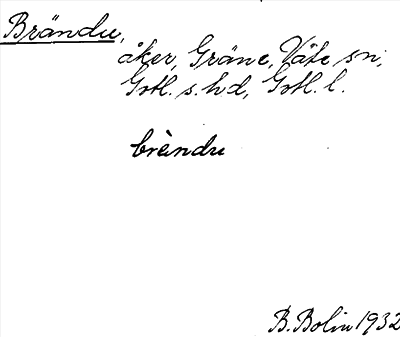 Brändu,
åker, Gräne, Väte sn,
Gotl. s. hd, Gotl. l.
brèndu
B. Bolin 1932